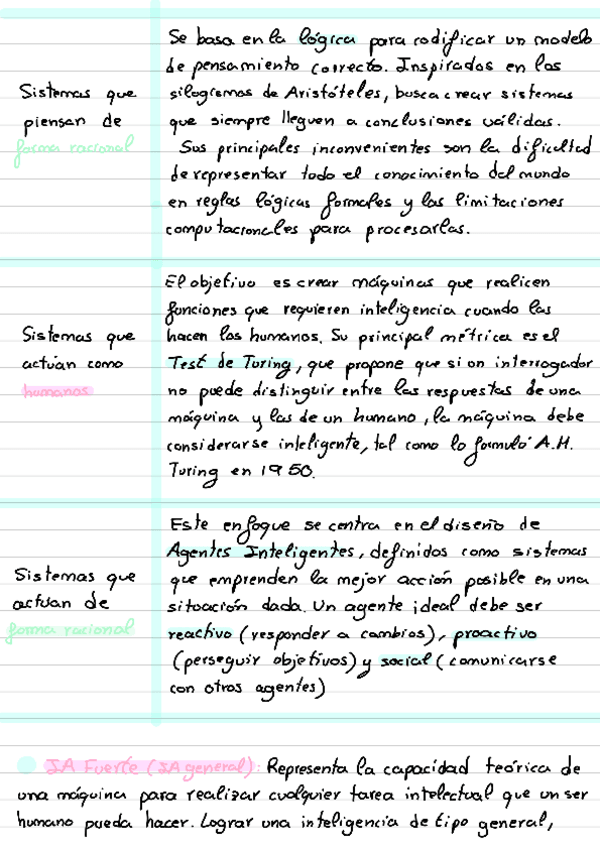 Sistemas que
piensan de
forma racional
Se basa en la lógica para codificar un modelo
de pensamiento correcto. Inspirados en los
silogismos de Aristóteles, busca crear sistemas
que siempre lleguen a conclusiones válidas.
Sus principales inconvenientes son la dificultad
de representar todo el conocimiento del mundo
en reglas lógicas formales y las limitaciones
computacionales para procesarlas.
Sistemas que
actúan como
humanos
El objetivo es crear máquinas que realicen
funciones que requieren inteligencia cuando las
hacen los humanos. Su principal métrica es el
Test de Turing, que propone que si un interrogador
no puede distinguir entre las respuestas de una
máquina y las de un humano, la máquina debe
considerarse inteligente, tal como lo formuló A.M.
Turing en 1950.
Sistemas que
actúan de
forma racional
Este enfoque se centra en el diseño de
Agentes Inteligentes, definidos como sistemas
que emprenden la mejor acción posible en una
situación dada. Un agente ideal debe ser
reactivo (responder a cambios), proactivo
(perseguir objetivos) y social (comunicarse
con otros agentes)
IA Fuerte (IA general): Representa la capacidad teórica de
una máquina para realizar cualquier tarea intelectual que un ser
humano pueda hacer. Lograr una inteligencia de tipo general,